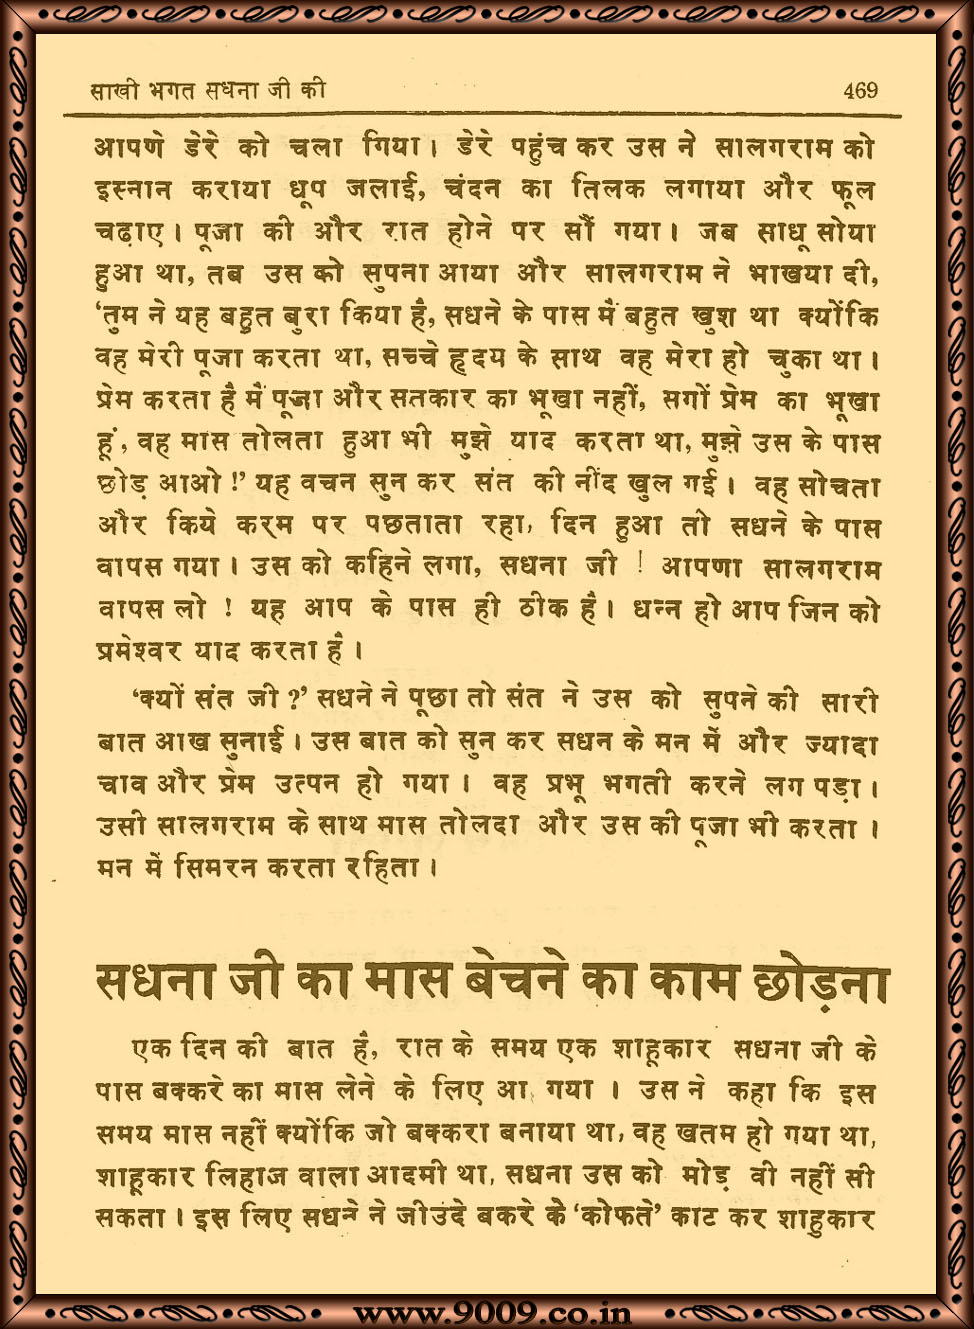 साखी भगत सधना जी की 469
आपणे डेरे को चला गिया। डेरे पहुंच कर उस ने सालगराम को
इस्नान कराया धूप जलाई, चंदन का तिलक लगाया और फूल
चढ़ाए। पूजा की और रात होने पर सौं गया। जब साधू सोया
हुआ था, तब उस को सुपना आया और सालगराम ने भाखया दी,
‘तुम ने यह बहुत बुरा किया है, सधने के पास मैं बहुत खुश था क्योंकि
वह मेरी पूजा करता था, सच्चे हृदय के साथ वह मेरा हो चुका था।
प्रेम करता है मैं पूजा और सतकार का भूखा नहीं, सगों प्रेम का भूखा
हूं, वह मास तोलता हुआ भी मुझे याद करता था, मुझे उस के पास
छोड़ आओ !’ यह वचन सुन कर संत की नींद खुल गई। वह सोचता
और किये कर्म पर पछताता रहा, दिन हुआ तो सधने के पास
वापस गया। उस को कहिने लगा, सधना जी ! आपणा सालगराम
वापस लो ! यह आप के पास ही ठीक है। धन्न हो आप जिन को
प्रमेश्वर याद करता है।
‘क्यों संत जी ?’ सधने ने पूछा तो संत ने उस को सुपने की सारी
बात आख सुनाई। उस बात को सुन कर सधन के मन में और ज्यादा
चाव और प्रेम उत्पन हो गया। वह प्रभू भगती करने लग पड़ा।
उसी सालगराम के साथ मास तोलदा और उस की पूजा भी करता।
मन में सिमरन करता रहिता।
सधना जी का मास बेचने का काम छोड़ना
एक दिन की बात है, रात के समय एक शाहूकार सधना जी के
पास बक्करे का मास लेने के लिए आ गया। उस ने कहा कि इस
समय मास नहीं क्योंकि जो बक्करा बनाया था, वह खतम हो गया था,
शाहूकार लिहाज वाला आदमी था, सधना उस को मोड़ वी नहीं सी
सकता। इस लिए सधने ने जीउंदे बकरे के ‘कोफते’ काट कर शाहुकार
www.9009.co.in